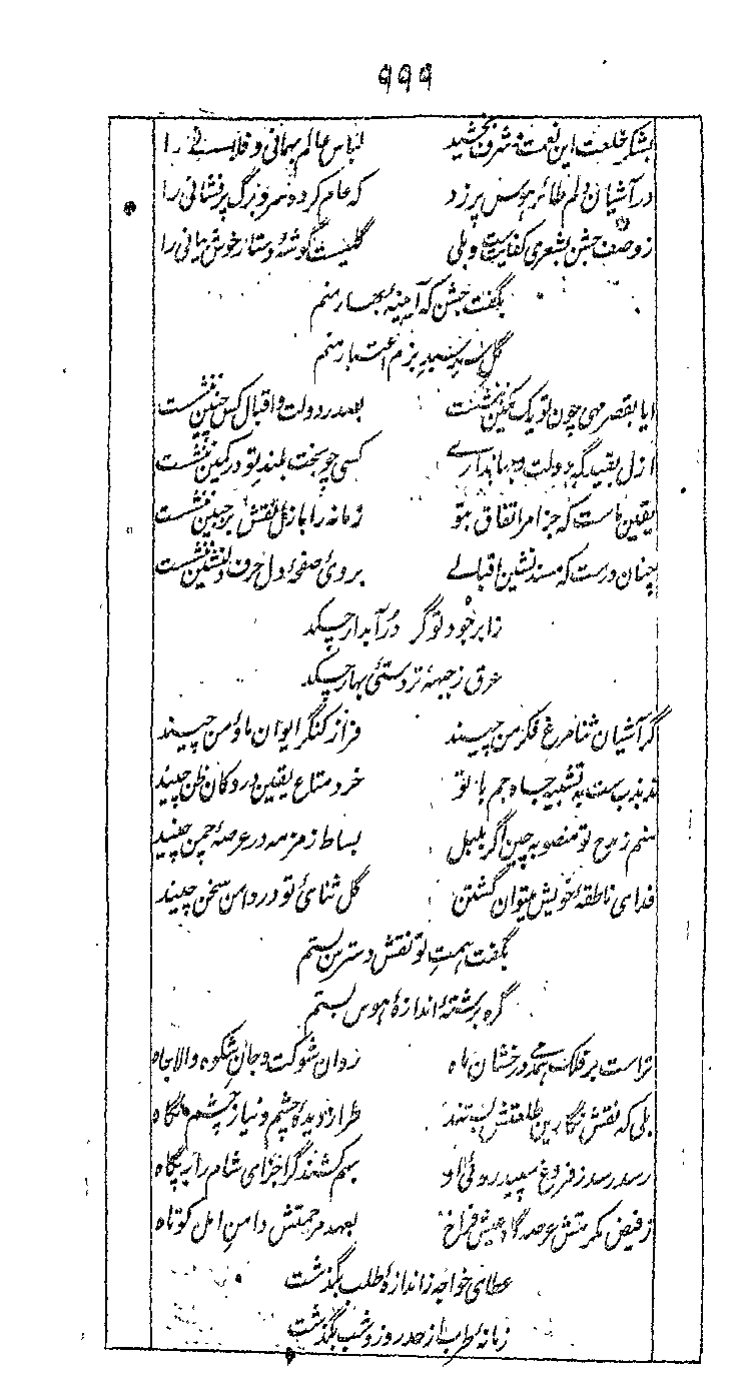 ۹۹۹
بشکر خلعت این نعمت شرف بخشید لباس عالم پہانی و فلانی را
در آشیان دلم طائر ہوس پر زد کہ عام کردہ سر و برگ پرفشانی را
ز وصف جشن بشعری کفایت ست ولی گلیست گوشۂ دستار خوش بیانی را
بگفت جشن کہ آئینۂ بہار منم
گل سر سبد بزم اعتبار منم
ایا بقصر مہی چون تو یک مکین ننشست بصدر دولت و اقبال کس چنین ننشست
ازل بقیدگہ دولت و جہانداری کسی چو بخت بلند تو در کمین ننشست
یقین ماست کہ جز امر اتفاق بتو زمانہ را بازل نقش بر جبین ننشست
چنان درست کہ مسند نشین اقبالی بروئ صفحۂ دل حرف دلنشین ننشست
ز ابر جود تو گر در آبدار چکد
عرق ز جبہۂ تردستئ بہار چکد
گر آشیان ثنا مرغ فکر من چیند فراز کنگر ایوان ماؤ من چیند
تذبذب ست بہ تشبیہ جاہ جم با تو خرد متاع یقین در دکان ظن چیند
منم ز مدح تو منصوبہ چین اگر بلبل بساط زمزمہ در عرصۂ چمن چیند
فدای ناطقۂ خویش میتوان گشتن گل ثنائ تو در دامن سخن چیند
بگفت ہمت تو نقش دسترس بستم
گرہ برشتۂ اندازۂ ہوس بستم
تراست بر فلک ہمدمی درخشان ماہ روان شوکت و جان شکوہ والا جاہ
بلی کہ نقش نگارین طلعتش بستند طراز دیدۂ چشم و نیاز چشم نگاہ
رسد رسد ز فروغ سپید روئی او بہم کشند گر اجزای شام را پگاہ
ز فیض مکرمتش عرصہ گاہ عیش فراخ بعہد مرحمتش دامن امل کوتاہ
عطای خواجہ ز اندازۂ طلب بگذشت
زمانۂ طرب از حد روز و شب بگذشت